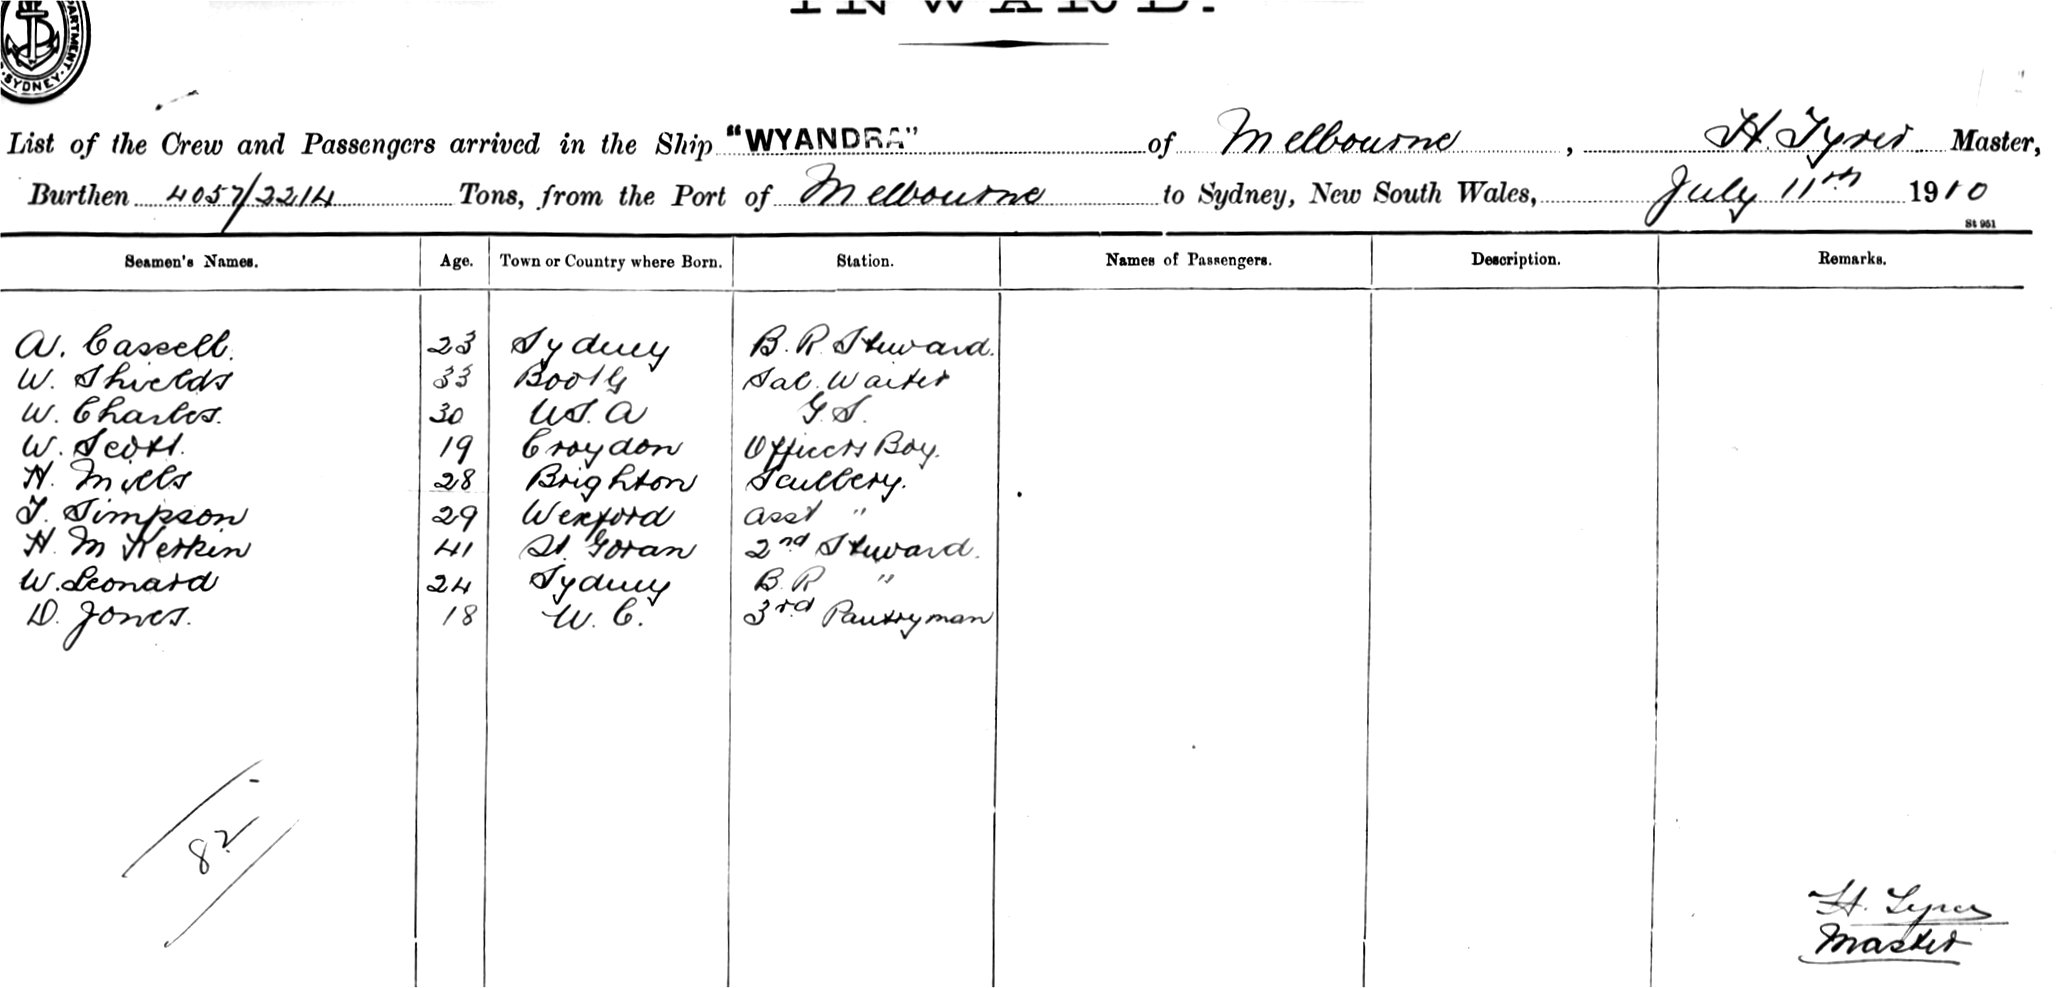 INWARD.
DEPARTMENT
SYDNEY
List of the Crew and Passengers arrived in the Ship "WYANDRA" of Melbourne, H. Tyrer Master,
Burthen 4057/2214 Tons, from the Port of Melbourne to Sydney, New South Wales, July 11th 1910
St 951
Seamen's Names. Age. Town or Country where Born. Station. Names of Passengers. Description. Remarks.
A. Cassell. 23 Sydney B. R. Steward.
W. Shields 33 Sal. Waiter
W. Charles. 30 U.S.A G.S.
W. Scott. 19 Croydon Officers Boy.
H. Mills 28 Brighton Scullery.
T. Simpson 29 Wexford Asst "
H. M Kerkin 41 St. Goran 2nd Steward.
W. Leonard 24 Sydney B. R "
D. Jones. 18 3rd Pantryman
82
H. Tyrer
Master